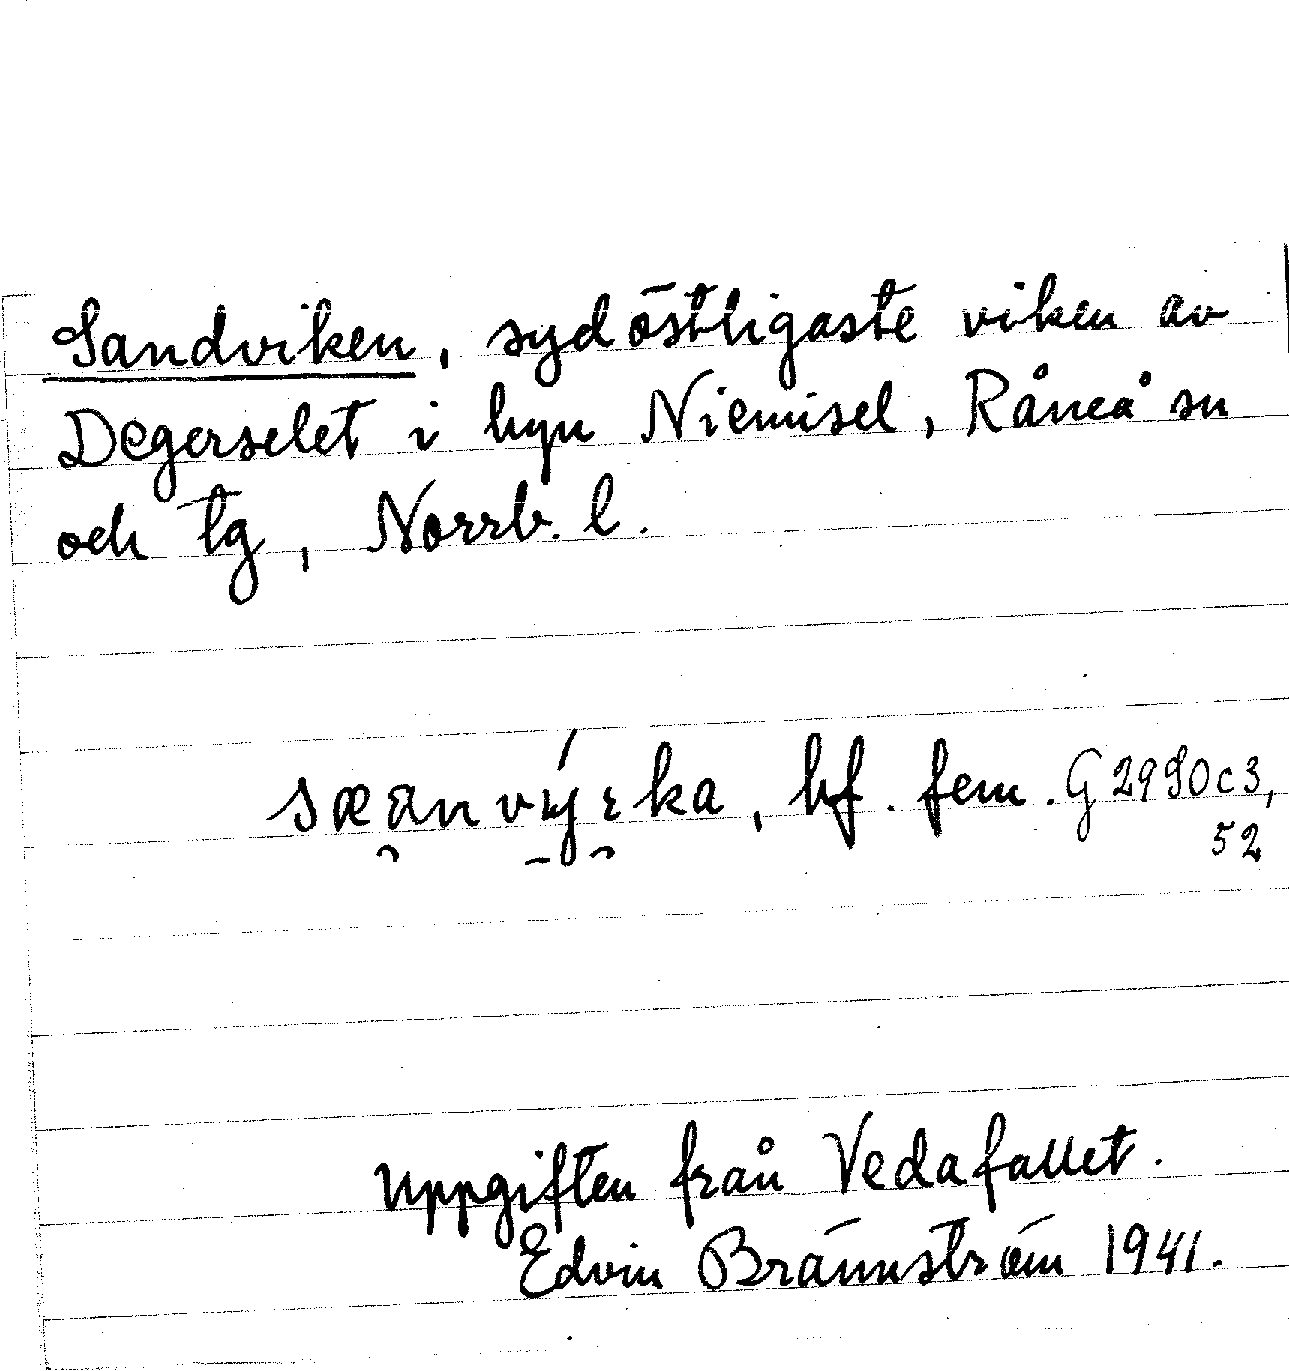 Sandviken, sydöstligaste viken av
Degerselet i byn Niemisel, Råneå sn
och tg, Norrb. l.
bf. fem. G 2990c3,
52
Uppgiften från Vedafallet.
Edvin Brännström 1941.